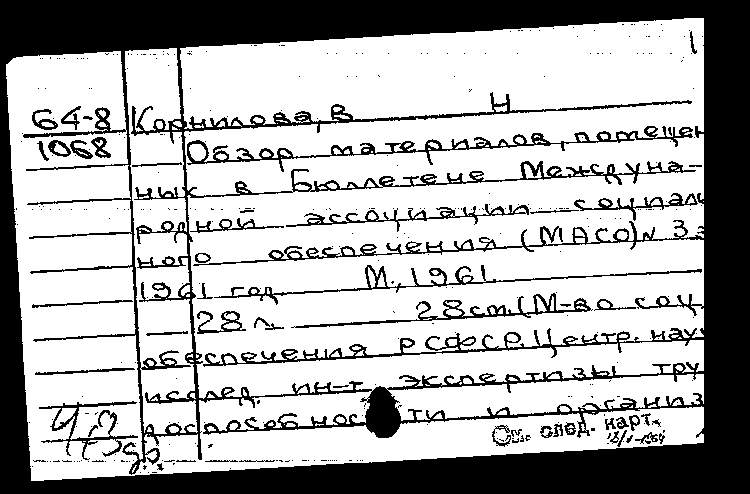 1
64-8 Корнилова, В Н
1068 Обзор материалов, помещен
ных в Бюллетене Междуна-
родной ассоциации социаль
ного обеспечения (МАСО) № 3 з
1961 год М., 1961.
28 л. 28 см. (М-во соц.
обеспечения РСФСР. Центр. науч
исслед. ин-т экспертизы тру
доспособности и организ
См. след. карт.